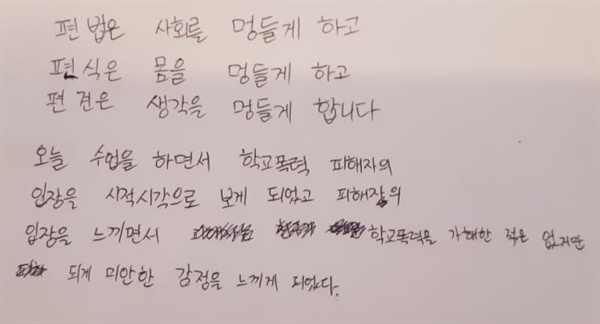 편법은 사회를 멍들게 하고
편식은 몸을 멍들게 하고
편견은 생각을 멍들게 합니다
오늘 수업을 하면서 학교폭력 피해자의
입장을 시적시각으로 보게 되었고 피해자의
입장을 느끼면서 학교폭력을 가해한 적은 없지만
되게 미안한 감정을 느끼게 되었다.